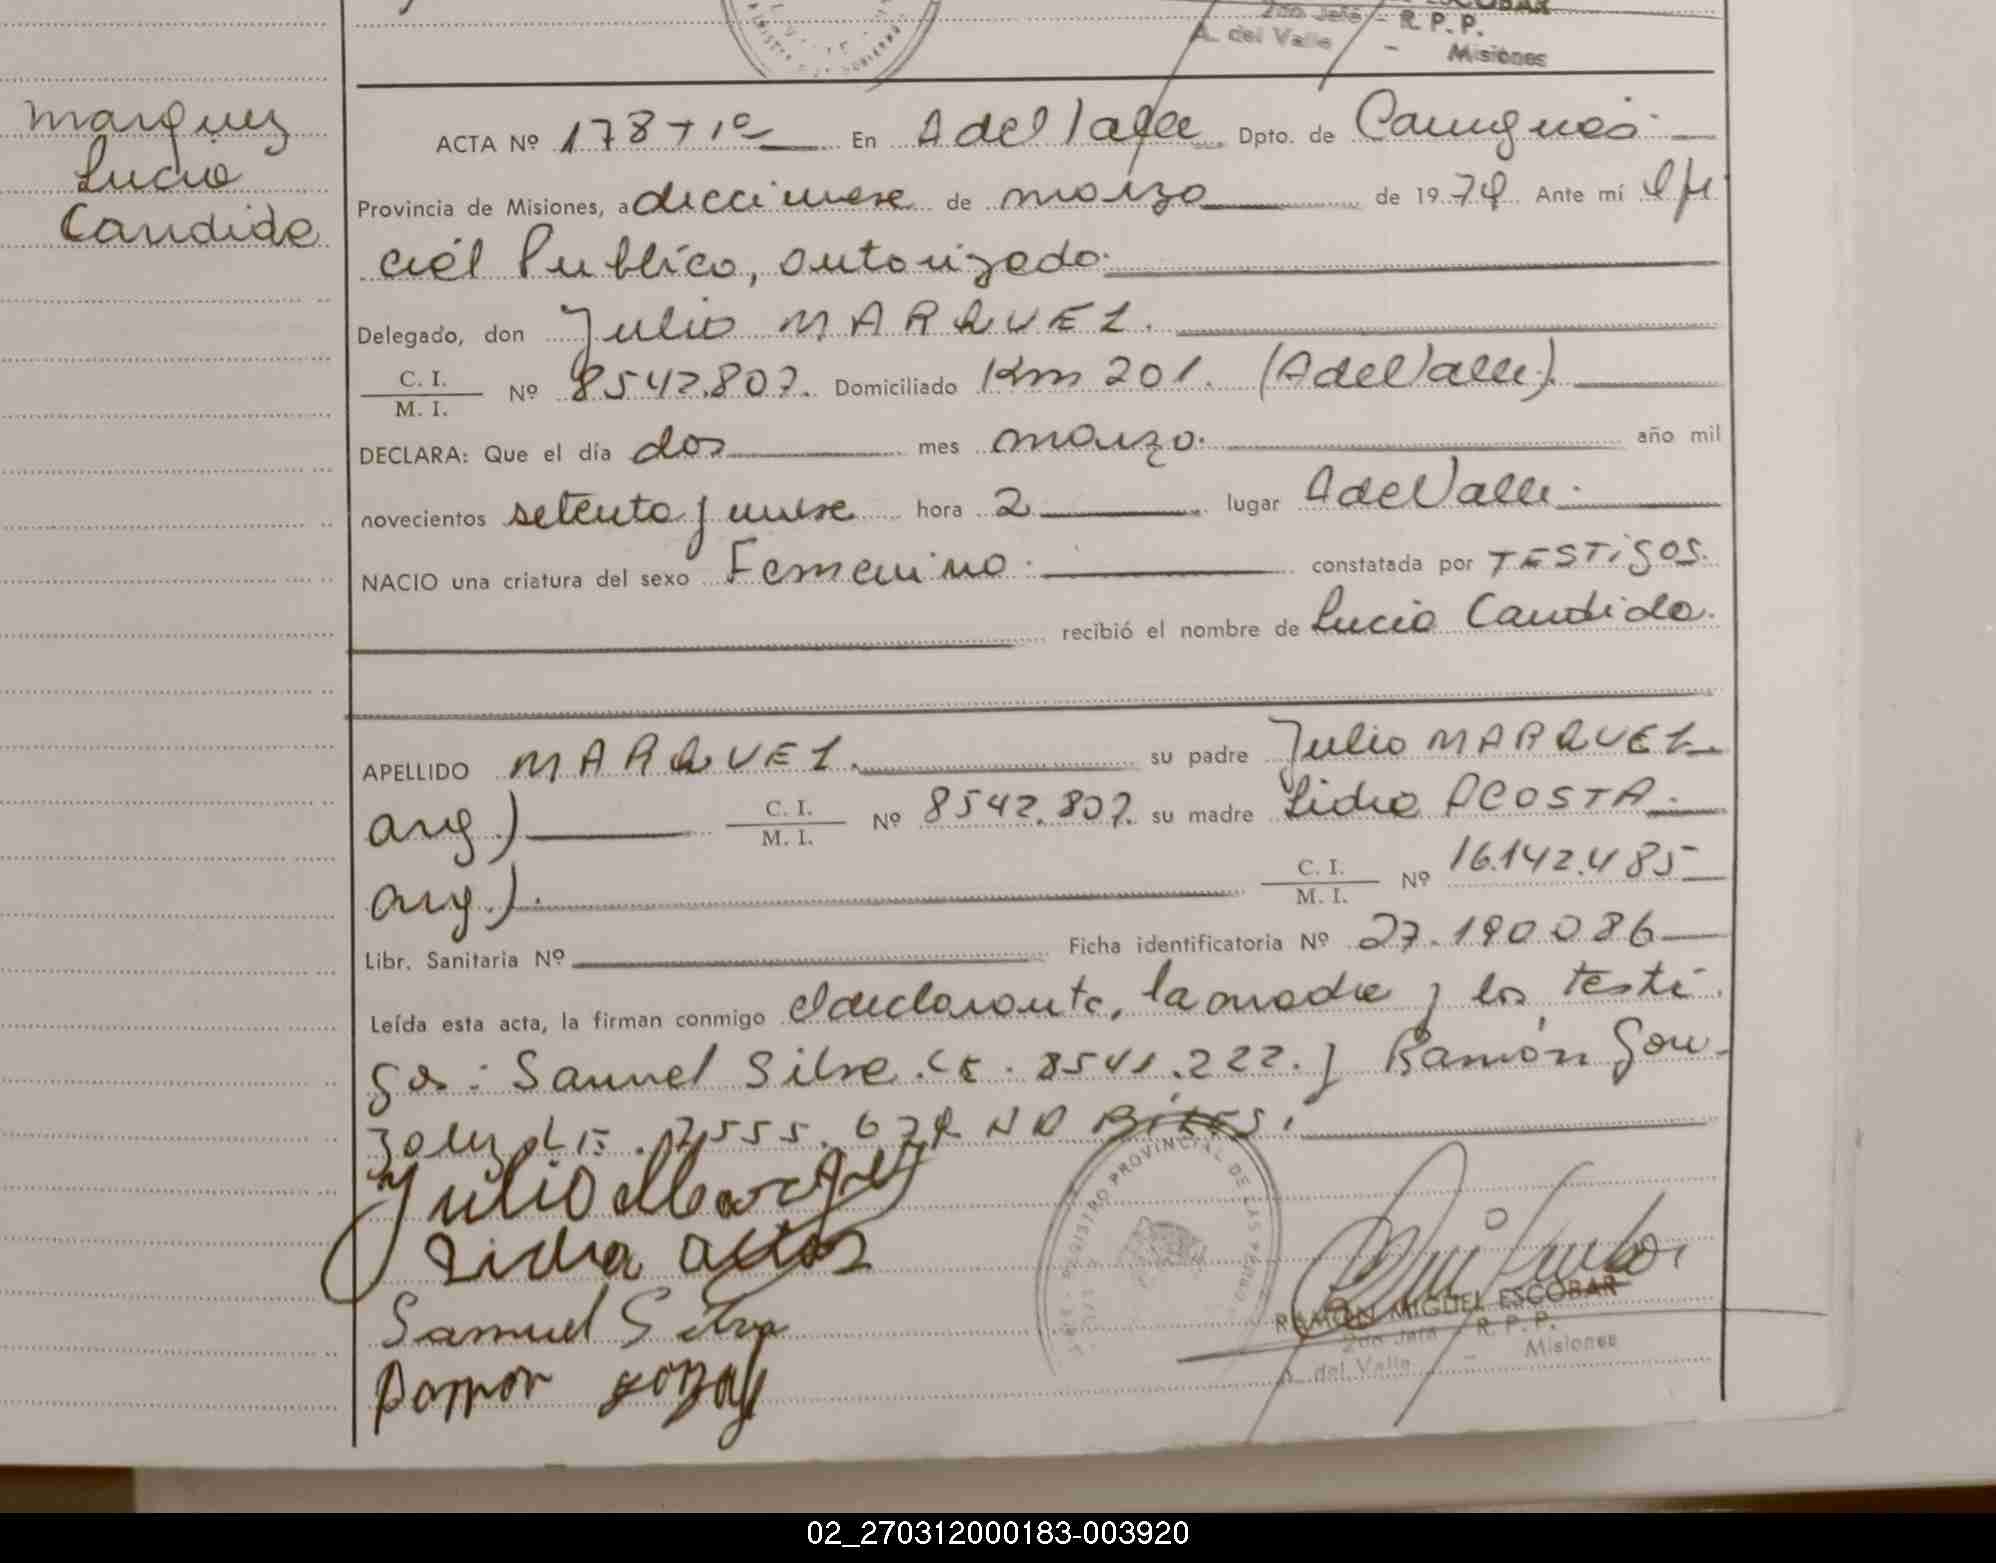 ESCOBAR
2do Jefe - R. P. P.
A. del Valle - Misiones
Marquez
Lucia
Candida
ACTA Nº 178 T 1º En A del Valle Dpto. de Cainguás.
Provincia de Misiones, a diecinueve de marzo de 1979. Ante mí Ofi
cial Público, autorizado.
Delegado, don Julio MARQUEZ.
C. I.
M. I.
Nº 8542.807. Domiciliado Km 201. (A del Valle).
DECLARA: Que el día dos mes marzo. año mil
novecientos setenta y nueve hora 2 lugar A del Valle.
NACIO una criatura del sexo Femenino. constatada por TESTIGOS.
recibió el nombre de Lucia Candida.
APELLIDO MARQUEZ. su padre Julio MARQUEZ
arg.) C. I.
M. I.
Nº 8542.807. su madre Lidia ACOSTA.
arg.). C. I.
M. I.
Nº 16.142.485
Libr. Sanitaria Nº Ficha identificatoria Nº 27.190086
Leída esta acta, la firman conmigo el declarante, la madre y los testi
gos: Samuel Silva. LE. 8541.222. y Ramón Gon
zalez LE. 7555.
Julio Marquez
Lidia
Samuel Silva
Ramon
REGISTRO PROVINCIAL DE LAS PERSO
RAMON MIGUEL ESCOBAR
2do Jefe - R. P. P.
A. del Valle - Misiones
02_270312000183-003920